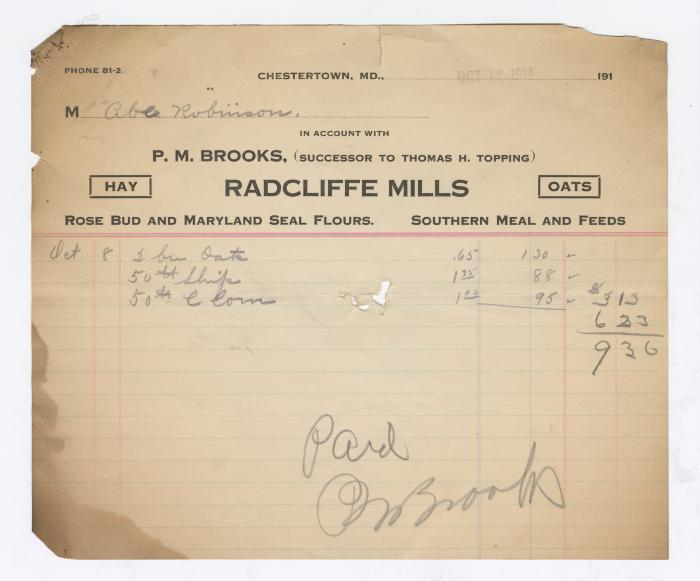 PHONE 81-2
CHESTERTOWN, MD., OCT 12 1914 191
M Abe Robinson.
IN ACCOUNT WITH
P. M. BROOKS, (SUCCESSOR TO THOMAS H. TOPPING)
HAY RADCLIFFE MILLS OATS
ROSE BUD AND MARYLAND SEAL FLOURS. SOUTHERN MEAL AND FEEDS
Oct 8 2 bu Oats .65 1 30
50 lb Ship 1 75 88
50 lb C Corn 1 90 95 $ 3 13
6 23
9 36
Paid
PM Brooks